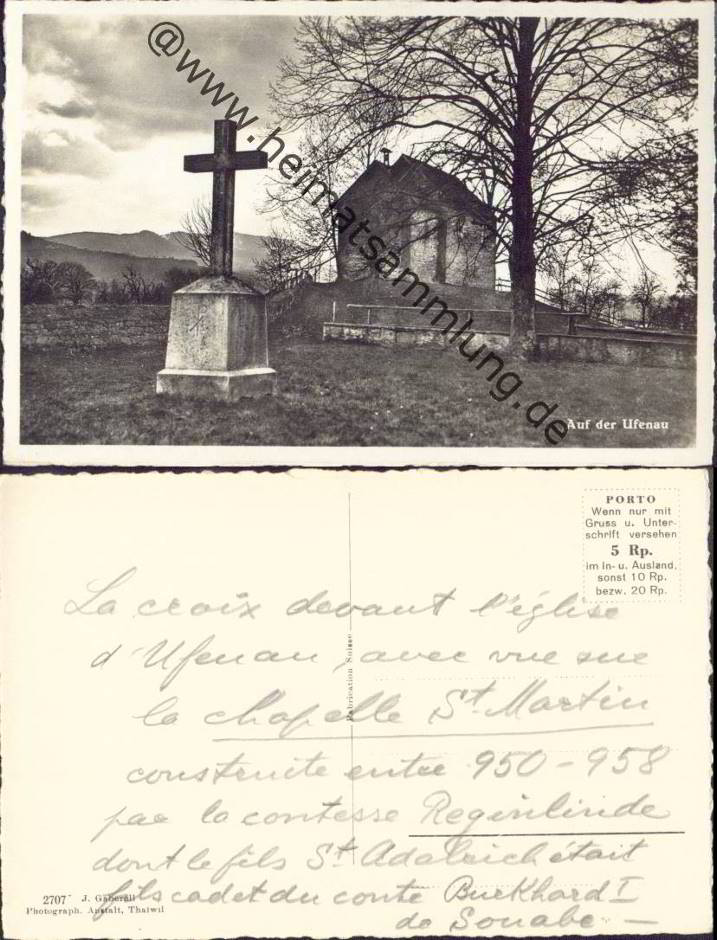 @www.heimatsammlung.de
Auf der Ufenau
PORTO
Wenn nur mit
Gruss u. Unter-
schrift versehen
5 Rp.
im In- u. Ausland,
sonst 10 Rp.
bezw. 20 Rp.
Fabrication Suisse
La croix devant l'église
d'Ufenau, avec vue sur
la chapelle St. Martin
construite entre 950-958
par la comtesse Reginlinde
dont le fils St Adalrich était
fils cadet du comte Burkhard I
de Souabe —
2707 J. Gaberell
Photograph. Anstalt, Thalwil